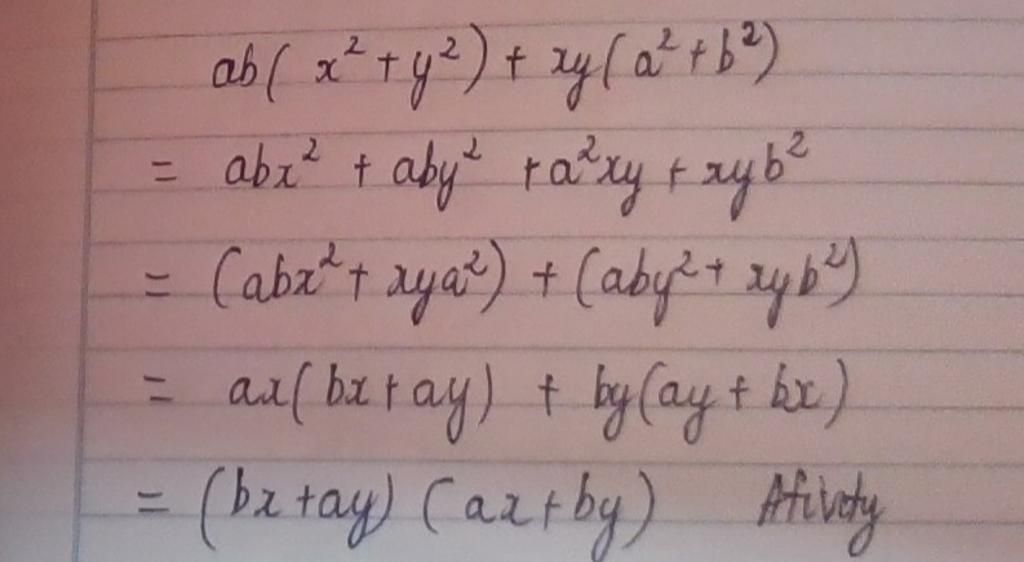 ab( x² + y²) + xy(a² + b²)
= abx² + aby² + a²xy + xyb²
= (abx² + xya²) + (aby² + xyb²)
= ax(bx + ay) + by(ay + bx)
= (bx + ay) (ax + by)